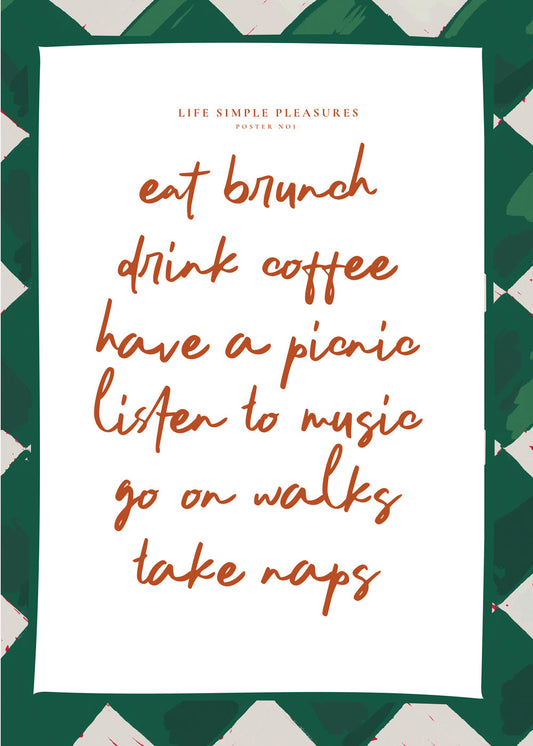 LIFE SIMPLE PLEASURES
POSTER NO1
eat brunch
drink coffee
have a picnic
listen to music
go on walks
take naps